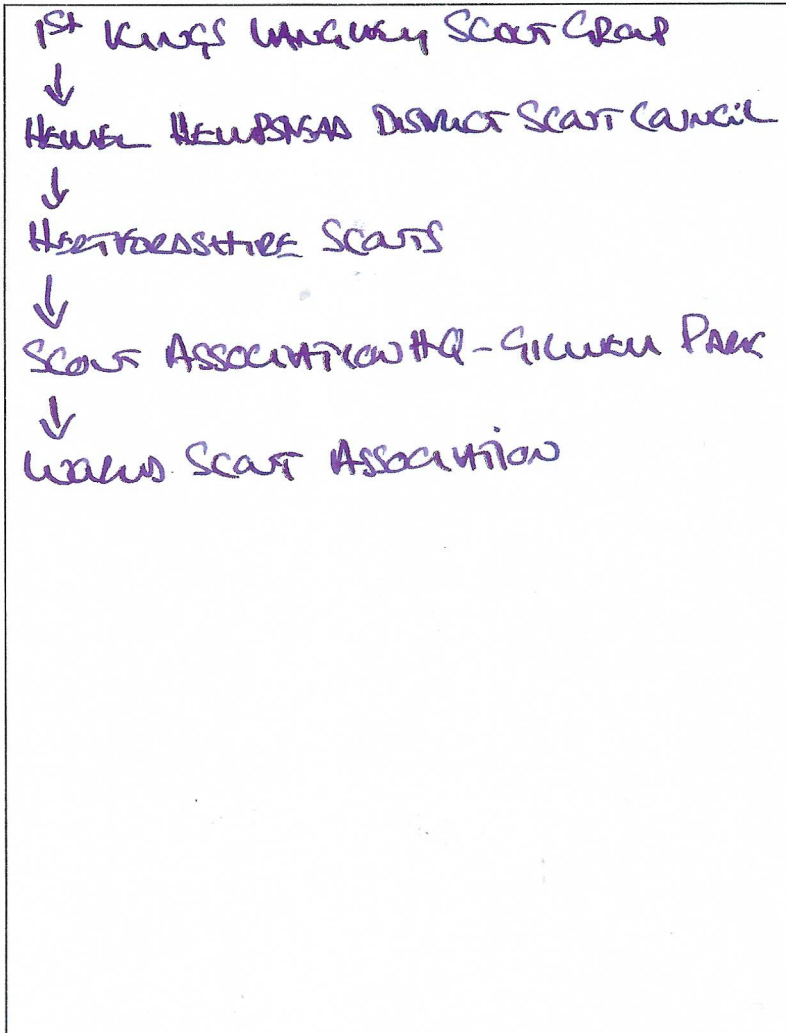 1st KINGS LANGLEY SCOUT GROUP
↓
HEMEL HEMPSTEAD DISTRICT SCOUT COUNCIL
↓
HERTFORDSHIRE SCOUTS
↓
SCOUT ASSOCIATION HQ - GILWELL PARK
↓
WORLD SCOUT ASSOCIATION